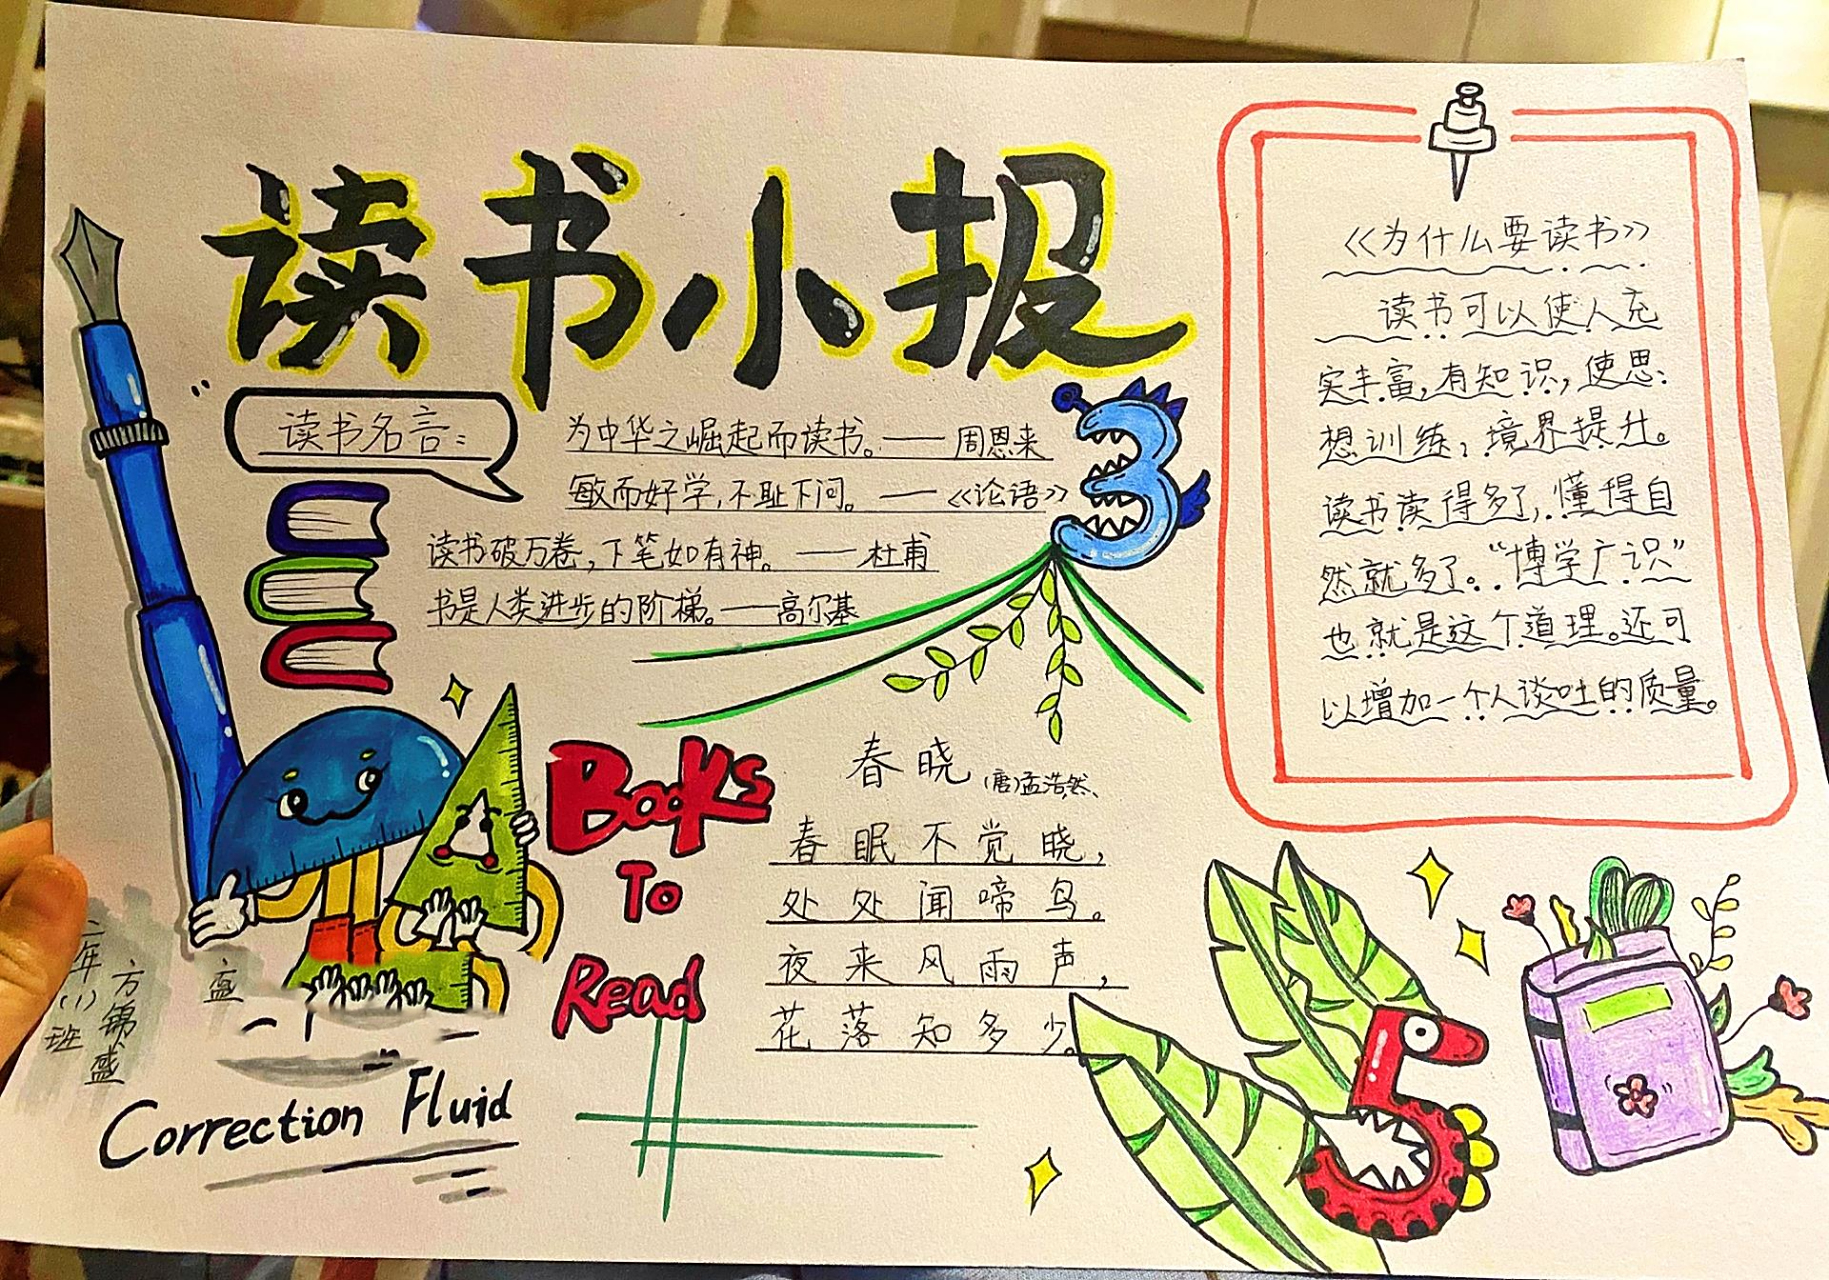 读书小报
读书名言:
为中华之崛起而读书。——周恩来
敏而好学,不耻下问。——《论语》
读书破万卷,下笔如有神。——杜甫
书是人类进步的阶梯。——高尔基
3
《为什么要读书》
读书可以使人充
实丰富,有知识,使思
想训练,境界提升。
读书读得多了,懂得自
然就多了。“博学广识”
也就是这个道理。还可
以增加一个人谈吐的质量。
Books
To
Read
春晓 (唐)孟浩然
春眠不觉晓,
处处闻啼鸟。
夜来风雨声,
花落知多少。
5
二年(1)班
方锦盛
Correction Fluid